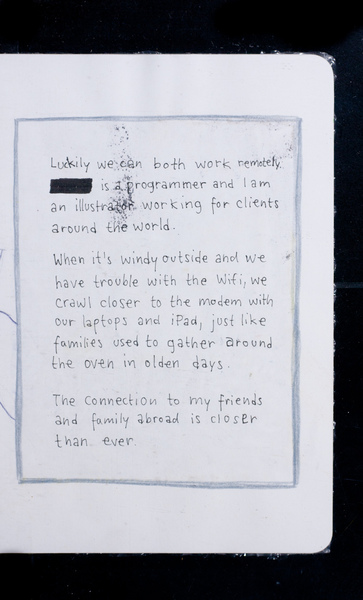 Luckily we can both work remotely.
is a programmer and I am
an illustrator working for clients
around the world.
When it's windy outside and we
have trouble with the Wifi, we
crawl closer to the modem with
our laptops and iPad, just like
families used to gather around
the oven in olden days.
The connection to my friends
and family abroad is closer
than ever.